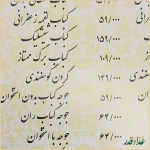 کباب لقمه زعفرانی ۵۹/۰۰۰
کباب بختیاری ۸۹/۰۰۰
کباب برگ ممتاز ۱۰۹/۰۰۰
گردن گوسفندی ۱۳۹/۰۰۰
جوجه کباب بدون استخوان ۵۹/۰۰۰
جوجه کباب ران ۶۴/۰۰۰
جوجه با استخوان ۶۴/۰۰۰